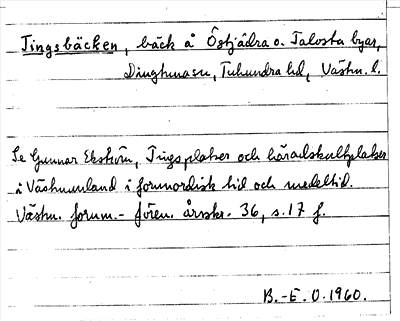 Tingsbäcken, bäck å Östjädra o. Talosta byar,
Dingtuna sn, Tuhundra hd, Västm. l.
Se Gunnar Ekström, Tingsplatser och häradskultplatser
i Västmanland i fornnordisk tid och medeltid.
Västm. fornm.-fören. årsskr. 36, s. 17 f.
B.-E. O. 1960.